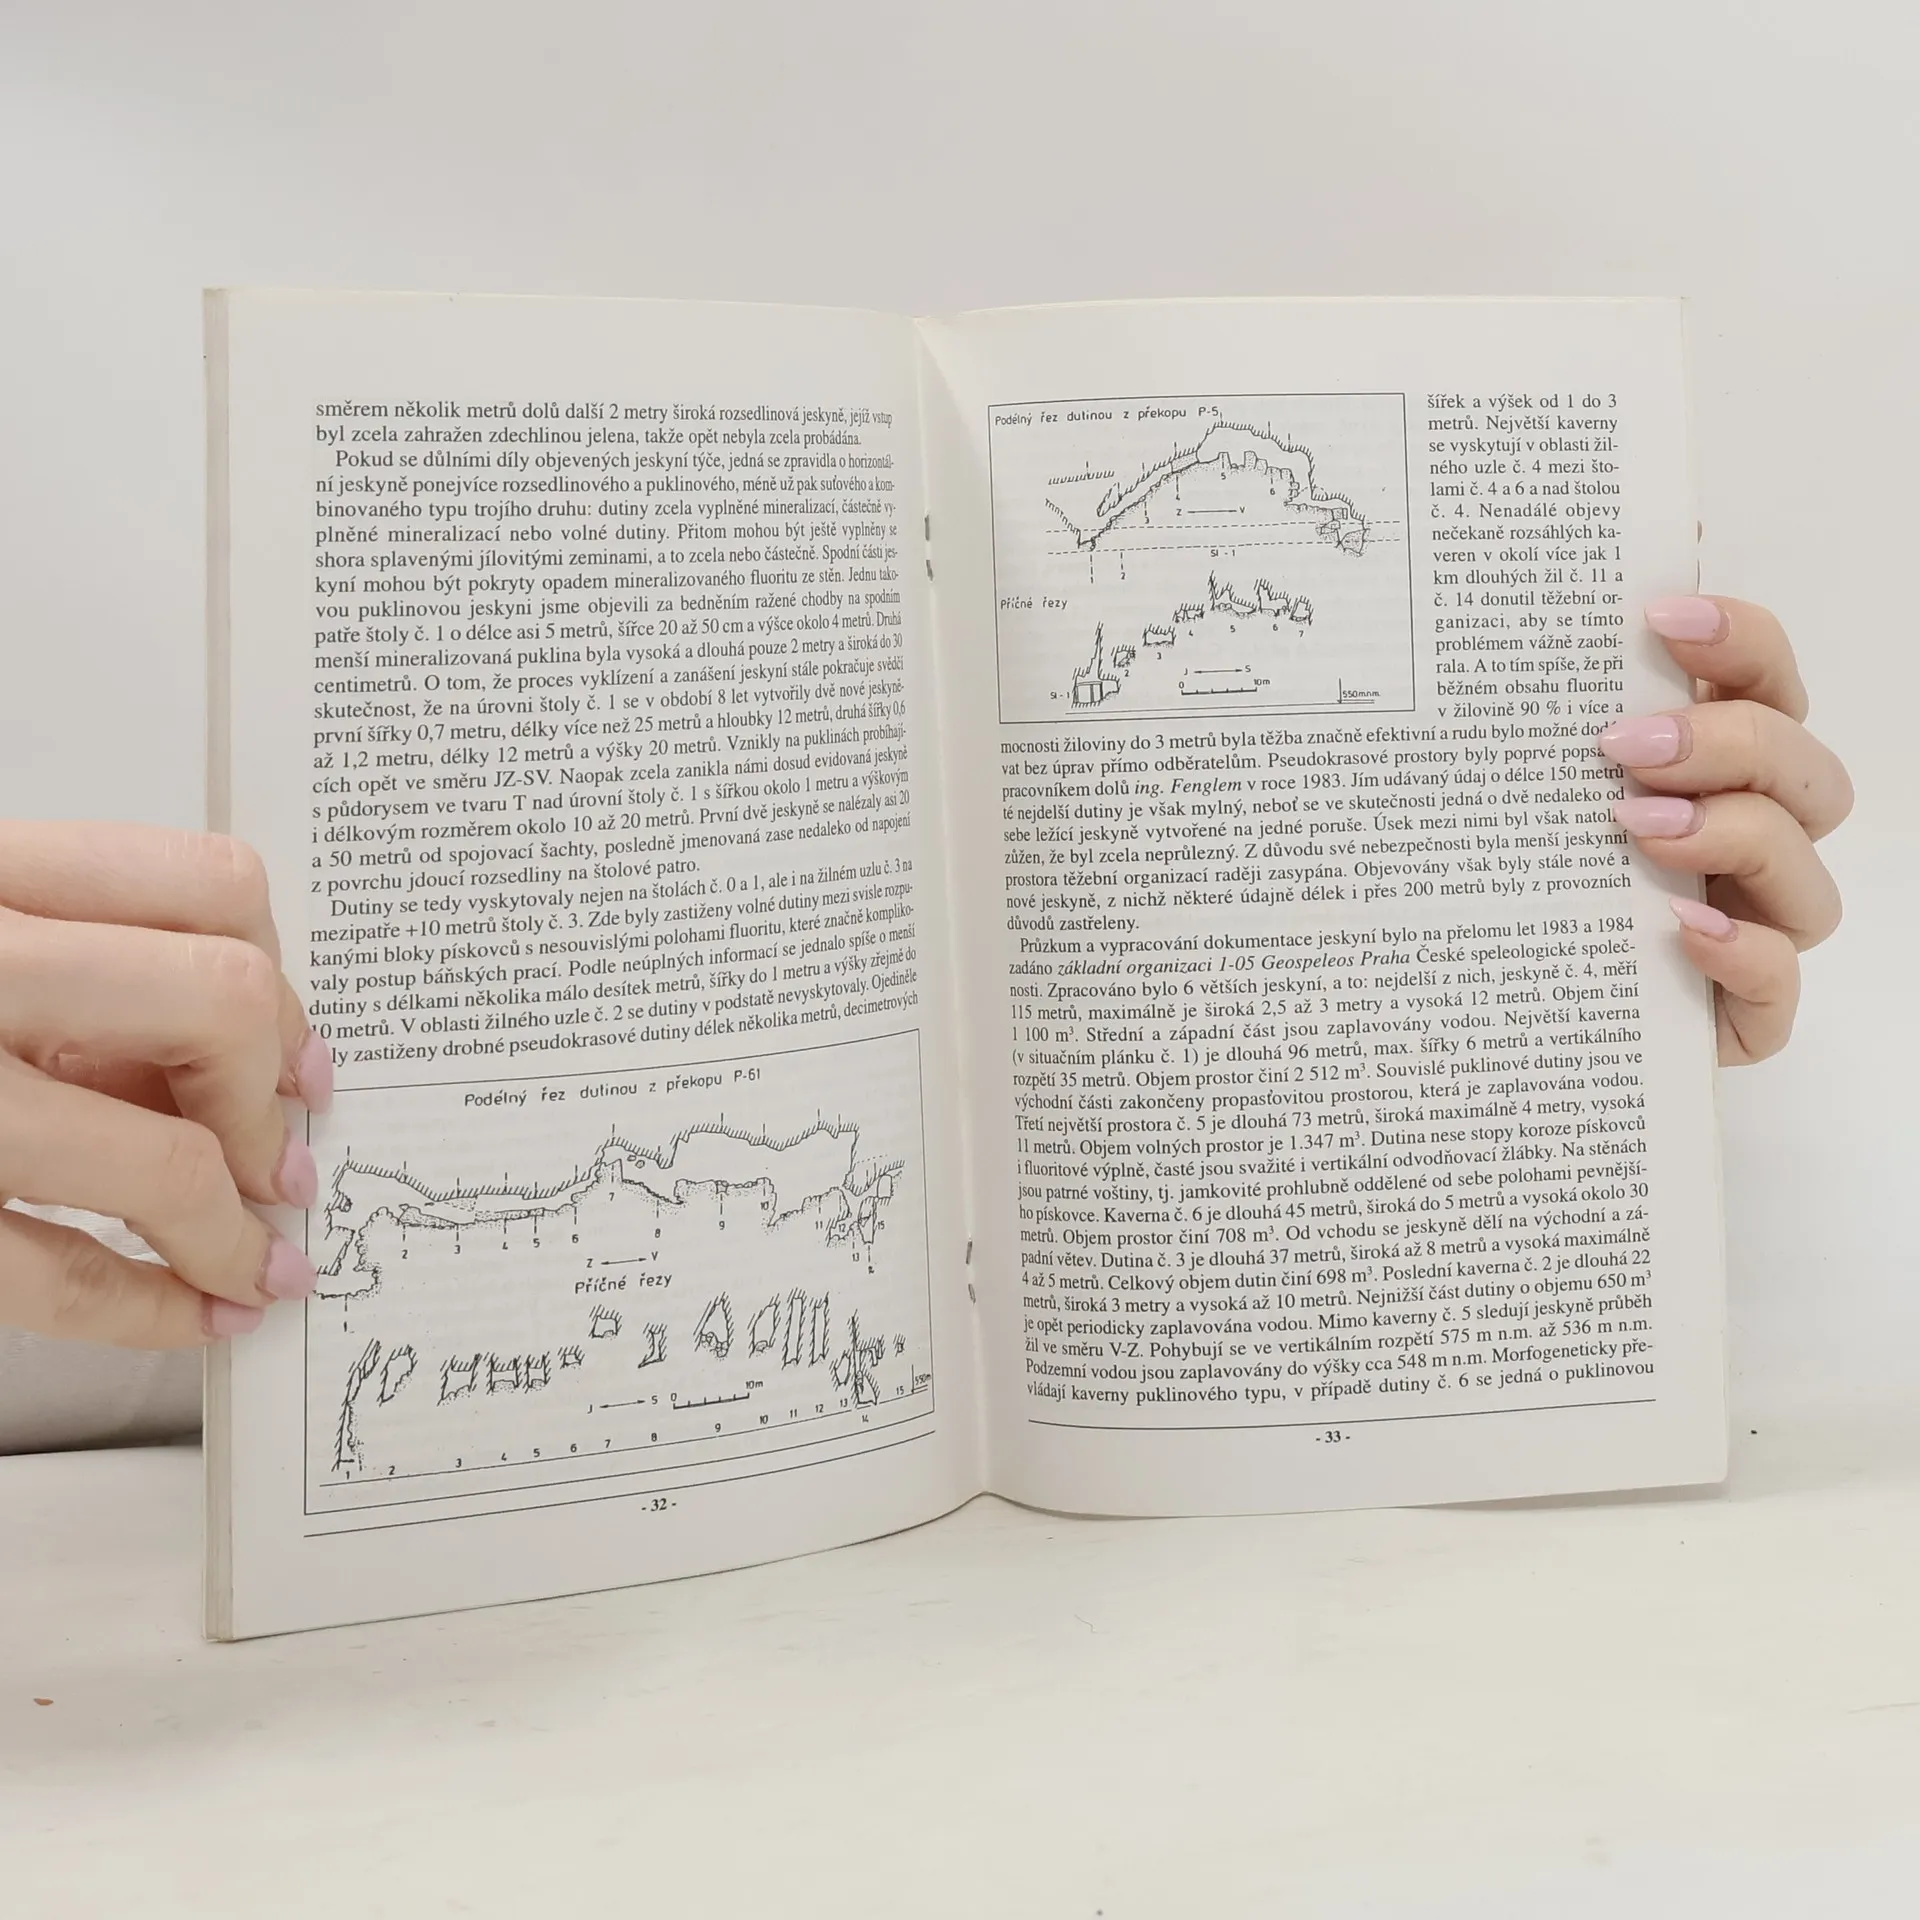 směrem několik metrů dolů další 2 metry široká rozsedlinová jeskyně, jejíž vstup
byl zcela zahražen zdechlinou jelena, takže opět nebyla zcela probádána.
Pokud se důlními díly objevených jeskyní týče, jedná se zpravidla o horizontál-
ní jeskyně ponejvíce rozsedlinového a puklinového, méně už pak suťového a kom-
binovaného typu trojího druhu: dutiny zcela vyplněné mineralizací, částečně vy-
plněné mineralizací nebo volné dutiny. Přitom mohou být ještě vyplněny se
shora splavenými jílovitými zeminami, a to zcela nebo částečně. Spodní části jes-
kyní mohou být pokryty opadem mineralizovaného fluoritu ze stěn. Jednu tako-
vou puklinovou jeskyni jsme objevili za bedněním ražené chodby na spodním
patře štoly č. 1 o délce asi 5 metrů, šířce 20 až 50 cm a výšce okolo 4 metrů. Druhá
menší mineralizovaná puklina byla vysoká a dlouhá pouze 2 metry a široká do 30
centimetrů. O tom, že proces vyklízení a zanášení jeskyní stále pokračuje svědčí
skutečnost, že na úrovni štoly č. 1 se v období 8 let vytvořily dvě nové jeskyně-
první šířky 0,7 metru, délky více než 25 metrů a hloubky 12 metrů, druhá šířky 0,6
až 1,2 metru, délky 12 metrů a výšky 20 metrů. Vznikly na puklinách probíhají-
cích opět ve směru JZ-SV. Naopak zcela zanikla námi dosud evidovaná jeskyně
s půdorysem ve tvaru T nad úrovní štoly č. 1 s šířkou okolo 1 metru a výškovým
i délkovým rozměrem okolo 10 až 20 metrů. První dvě jeskyně se nalézaly asi 20
a 50 metrů od spojovací šachty, posledně jmenovaná zase nedaleko od napojení
z povrchu jdoucí rozsedliny na štolové patro.
Dutiny se tedy vyskytovaly nejen na štolách č. 0 a 1, ale i na žilném uzlu č. 3 na
mezipatře +10 metrů štoly č. 3. Zde byly zastiženy volné dutiny mezi svisle rozpu-
kanými bloky pískovců s nesouvislými polohami fluoritu, které značně kompliko-
valy postup báňských prací. Podle neúplných informací se jednalo spíše o menší
dutiny s délkami několika málo desítek metrů, šířky do 1 metru a výšky zřejmě do
10 metrů. V oblasti žilného uzle č. 2 se dutiny v podstatě nevyskytovaly. Ojediněle
ly zastiženy drobné pseudokrasové dutiny délek několika metrů, decimetrových
Podélný řez dutinou z překopu P-61
2 3 4 5 6 7 8 9 10 11 12 13 15
Z V
Příčné řezy
J S 0 10m
550m
1 2 3 4 5 6 7 8 9 10 11 12 13 14 15
- 32 -
Podélný řez dutinou z překopu P-5
1 2 3 4 5 6
Z V
Sl - 1
Příčné řezy
2 3 4 5 6 7
Sl - 1
J S
0 10m
550m n.m.
šířek a výšek od 1 do 3
metrů. Největší kaverny
se vyskytují v oblasti žil-
ného uzle č. 4 mezi što-
lami č. 4 a 6 a nad štolou
č. 4. Nenadálé objevy
nečekaně rozsáhlých ka-
veren v okolí více jak 1
km dlouhých žil č. 11 a
č. 14 donutil těžební or-
ganizaci, aby se tímto
problémem vážně zaobí-
rala. A to tím spíše, že při
běžném obsahu fluoritu
v žilovině 90 % i více a
mocnosti žiloviny do 3 metrů byla těžba značně efektivní a rudu bylo možné
vat bez úprav přímo odběratelům. Pseudokrasové prostory byly poprvé
pracovníkem dolů ing. Fenglem v roce 1983. Jím udávaný údaj o délce 150 metrů
té nejdelší dutiny je však mylný, neboť se ve skutečnosti jedná o dvě nedaleko od
sebe ležící jeskyně vytvořené na jedné poruše. Úsek mezi nimi byl však
zúžen, že byl zcela neprůlezný. Z důvodu své nebezpečnosti byla menší jeskynní
prostora těžební organizací raději zasypána. Objevovány však byly stále nové a
nové jeskyně, z nichž některé údajně délek i přes 200 metrů byly z provozních
důvodů zastřeleny.
Průzkum a vypracování dokumentace jeskyní bylo na přelomu let 1983 a 1984
zadáno základní organizaci 1-05 Geospeleos Praha České speleologické společ-
nosti. Zpracováno bylo 6 větších jeskyní, a to: nejdelší z nich, jeskyně č. 4, měří
115 metrů, maximálně je široká 2,5 až 3 metry a vysoká 12 metrů. Objem činí
1 100 m³. Střední a západní část jsou zaplavovány vodou. Největší kaverna
(v situačním plánku č. 1) je dlouhá 96 metrů, max. šířky 6 metrů a vertikálního
rozpětí 35 metrů. Objem prostor činí 2 512 m³. Souvislé puklinové dutiny jsou ve
východní části zakončeny propasťovitou prostorou, která je zaplavována vodou.
Třetí největší prostora č. 5 je dlouhá 73 metrů, široká maximálně 4 metry, vysoká
11 metrů. Objem volných prostor je 1.347 m³. Dutina nese stopy koroze pískovců
i fluoritové výplně, časté jsou svažité i vertikální odvodňovací žlábky. Na stěnách
jsou patrné voštiny, tj. jamkovité prohlubně oddělené od sebe polohami pevnější-
ho pískovce. Kaverna č. 6 je dlouhá 45 metrů, široká do 5 metrů a vysoká okolo 30
metrů. Objem prostor činí 708 m³. Od vchodu se jeskyně dělí na východní a zá-
padní větev. Dutina č. 3 je dlouhá 37 metrů, široká až 8 metrů a vysoká maximálně
4 až 5 metrů. Celkový objem dutin činí 698 m³. Poslední kaverna č. 2 je dlouhá 22
metrů, široká 3 metry a vysoká až 10 metrů. Nejnižší část dutiny o objemu 650 m³
je opět periodicky zaplavována vodou. Mimo kaverny č. 5 sledují jeskyně průběh
žil ve směru V-Z. Pohybují se ve vertikálním rozpětí 575 m n.m. až 536 m n.m.
Podzemní vodou jsou zaplavovány do výšky cca 548 m n.m. Morfogeneticky pře-
vládají kaverny puklinového typu, v případě dutiny č. 6 se jedná o puklinovou
- 33 -